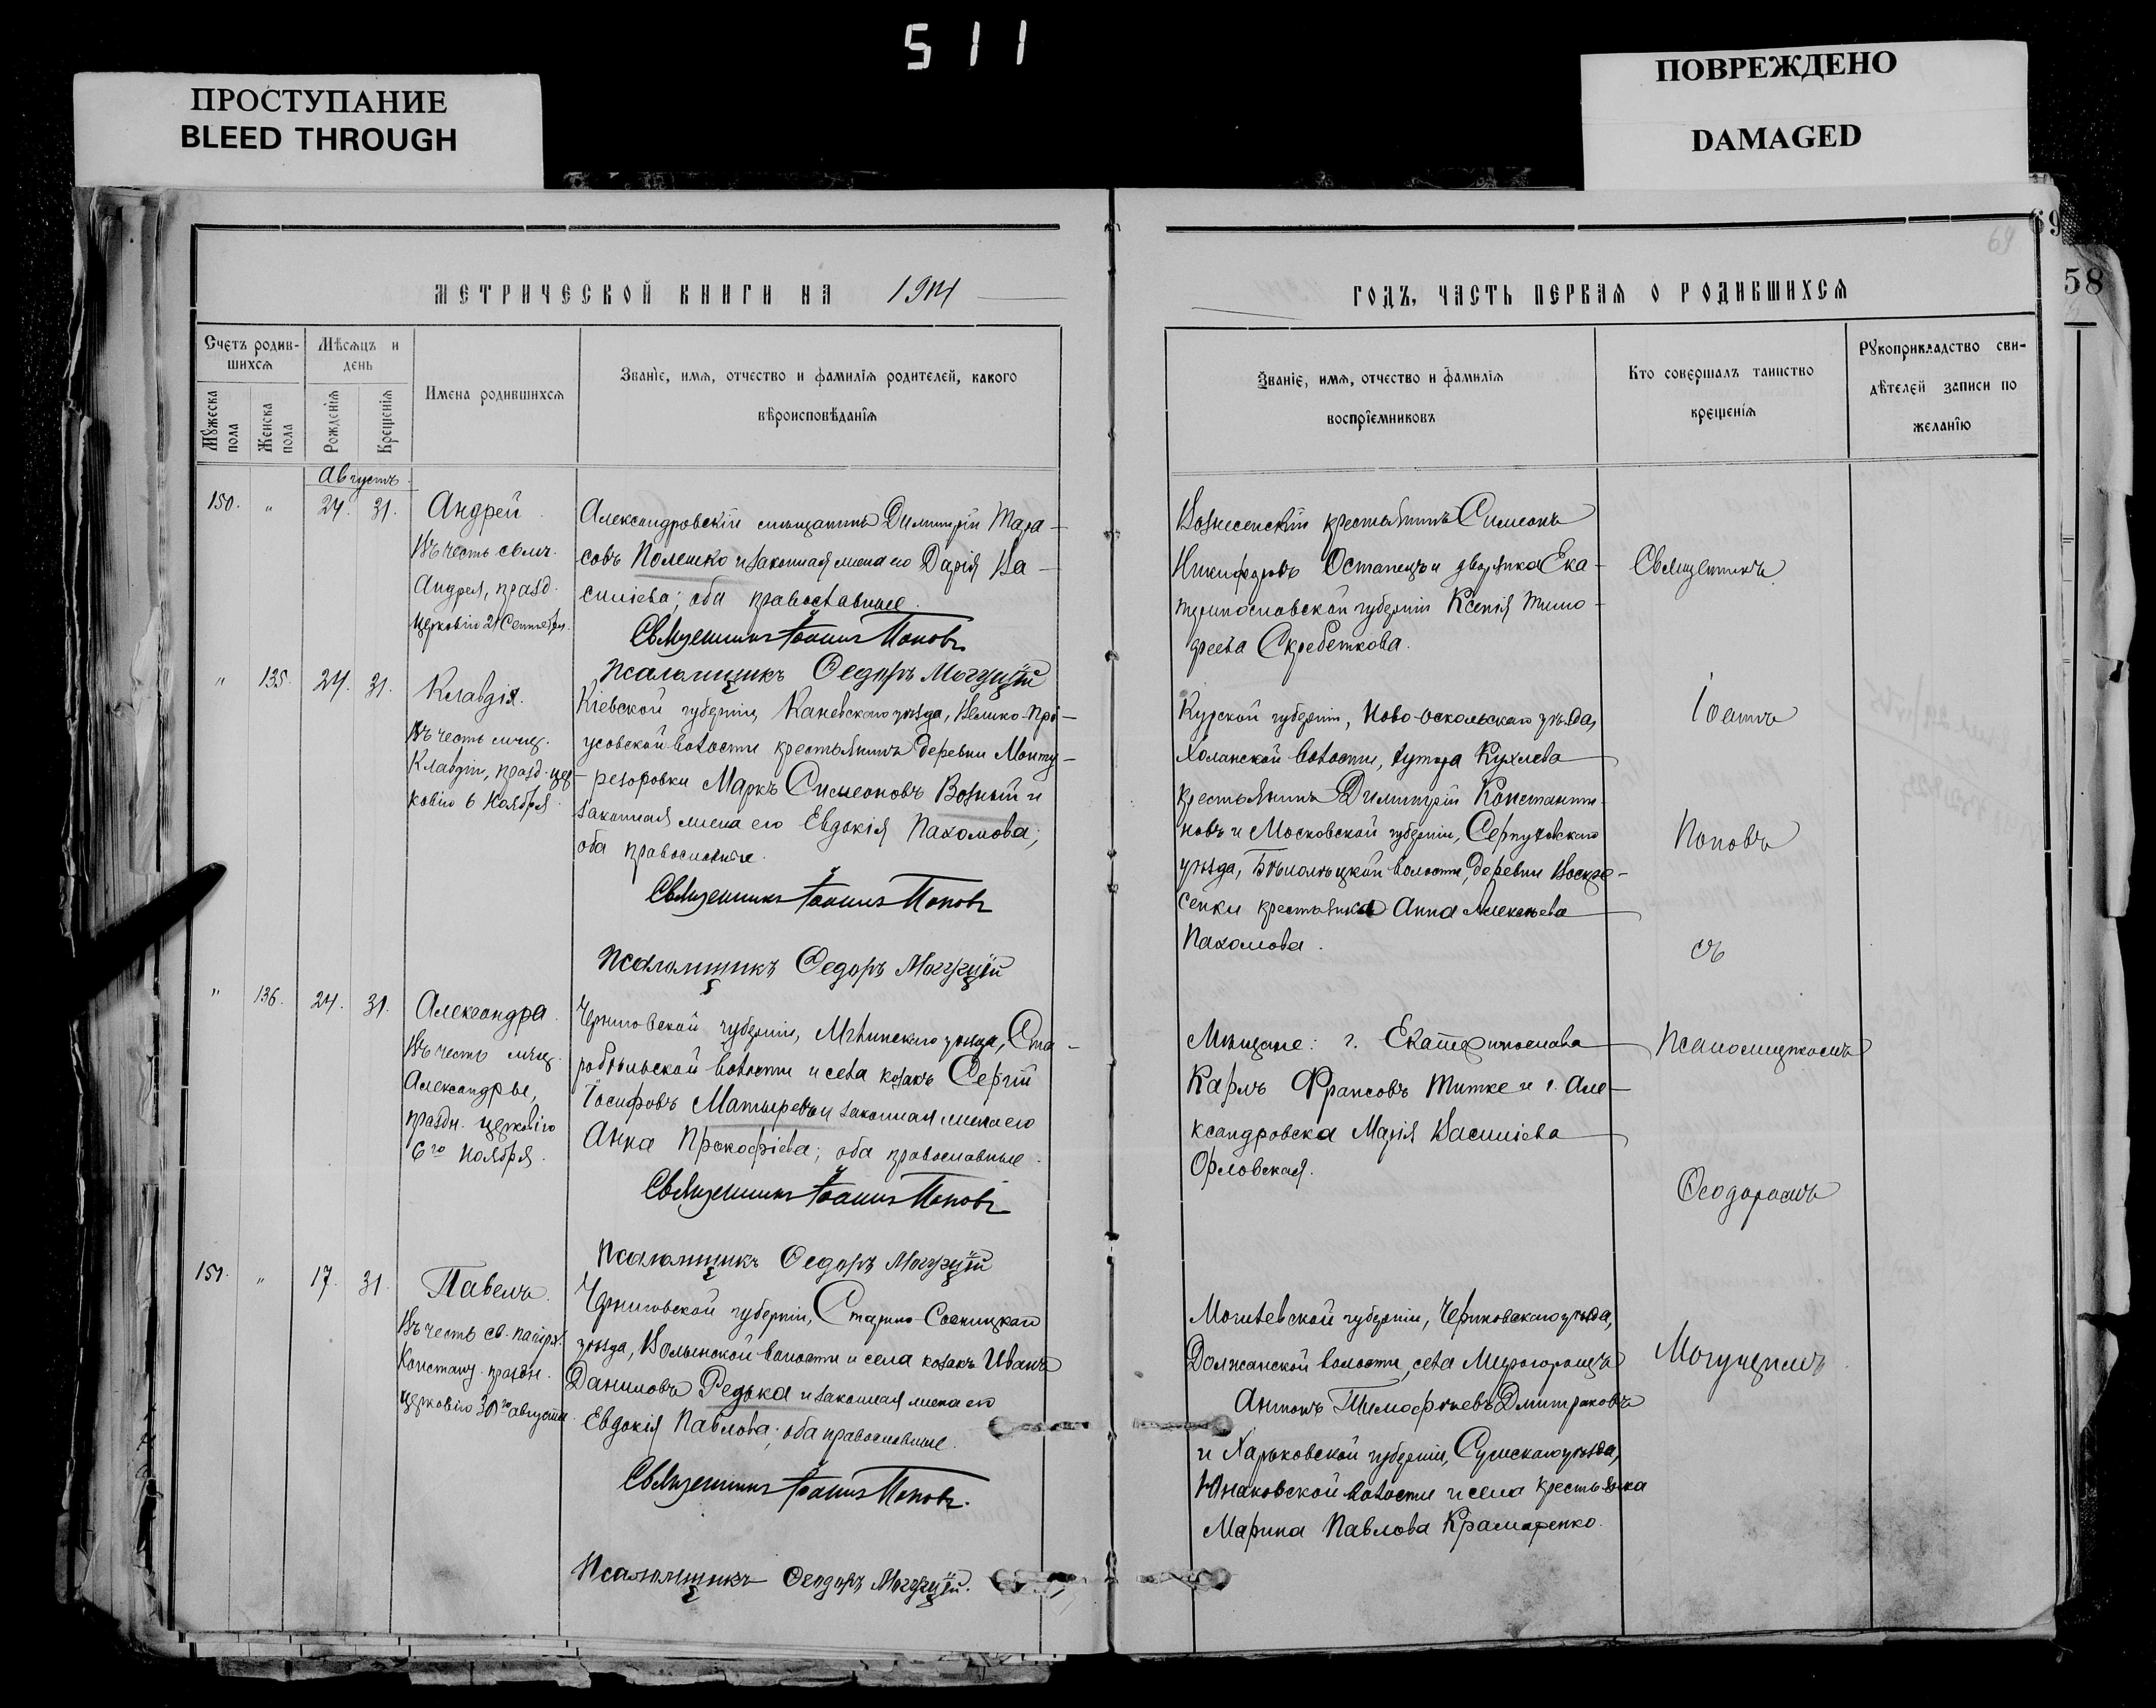 511
ПРОСТУПАНИЕ
BLEED THROUGH
ПОВРЕЖДЕНО
DAMAGED
69
69
58
МЕТРИЧЕСКОЙ КНИГИ НА 1914
Счетъ родив-
шихся
Мѣсяцъ и
день
Мужеска
пола
Женска
пола
Рожденія
Крещенія
Имена родившихся
Званіе, имя, отчество и фамилія родителей, какого
вѣроисповѣданія
Августъ
150. " 24. 31.
Андрей
Въ честь
Андрея, празд.
церковію 21 Сентября.
Александровскій мѣщанинъ Димитрій Тара-
совъ Полешко и законная жена его Дарія Ва-
силіева; оба православные.
Священникъ Іоаннъ Поповъ
Псаломщикъ Ѳедоръ Могучій
" 135. 24. 31.
Клавдія.
Въ честь мчиц.
Клавдіи, празд. цер-
ковію 6 Ноября.
Кіевской губерніи, Каневскаго уѣзда, Велико-
волости крестьянинъ деревни
Маркъ Симеоновъ Возный и
законная жена его Евдокія Пахомова;
оба православные.
Священникъ Іоаннъ Поповъ
Псаломщикъ Ѳедоръ Могучій
" 136. 24. 31.
Александра.
Въ честь мчиц.
Александры,
праздн. церковію
6го Ноября.
Черниговской губерніи, Мглинскаго уѣзда, Ста-
волости и села козакъ Сергій
Іосифовъ Матыревъ и законная жена его
Анна Прокофіева; оба православные.
Священникъ Іоаннъ Поповъ
Псаломщикъ Ѳедоръ Могучій
151. " 17. 31.
Павелъ.
Въ честь св. патрі.
Констант. праздн.
церковію 30го августа.
Черниговской губерніи,
уѣзда, Волынской волости и села козакъ Иванъ
Даниловъ Редька и законная жена его
Евдокія Павлова; оба православные.
Священникъ Іоаннъ Поповъ.
Псаломщикъ Ѳеодоръ Могучій.
ГОДЪ, ЧАСТЬ ПЕРВАЯ О РОДИВШИХСЯ
Званіе, имя, отчество и фамилія
воспріемниковъ
Кто совершалъ таинство
крещенія
Рукоприкладство сви-
дѣтелей записи по
желанію
Вознесенскій крестьянинъ Симеонъ
Никифоровъ Остапецъ и дворянка Ека-
теринославской губерніи Ксенія Тимо-
феева Скребеткова.
Курской губерніи, Ново-Оскольскаго уѣзда,
Холанской волости, хутора Кухлева
крестьянинъ Димитрій Константи-
новъ и Московской губерніи, Серпуховскаго
уѣзда, волости, деревни Воскре-
сенки крестьянка Анна Алексѣева
Пахомова.
Мѣщане: г. Екатеринослава
Карлъ Францовъ Титке и г. Але-
ксандровска Марія Василіева
Орловская.
Могилевской губерніи, Чериковскаго уѣзда,
Должанской волости, села
Антонъ Тимофѣевъ Дмитраковъ
и Харьковской губерніи, Сумскаго уѣзда,
Юнаковской волости и села крестьянка
Марина Павлова Крамаренко.
Священникъ
Іоаннъ
Поповъ
съ
Псаломщикомъ
Ѳеодоромъ
Могучимъ.